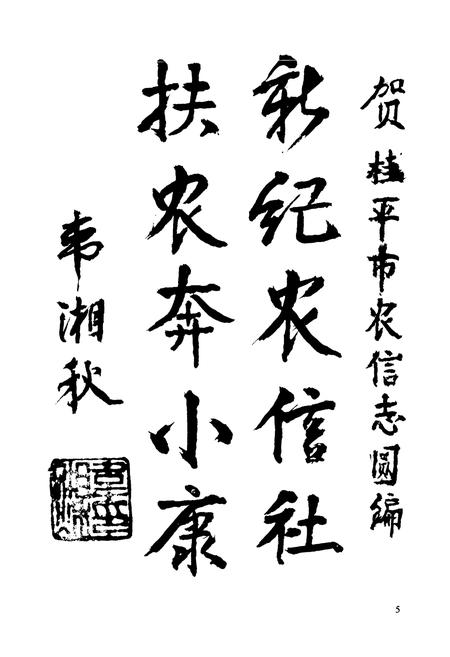 贺桂平市农信志圆编
新纪农信社
扶农奔小康
韦湘秋
5